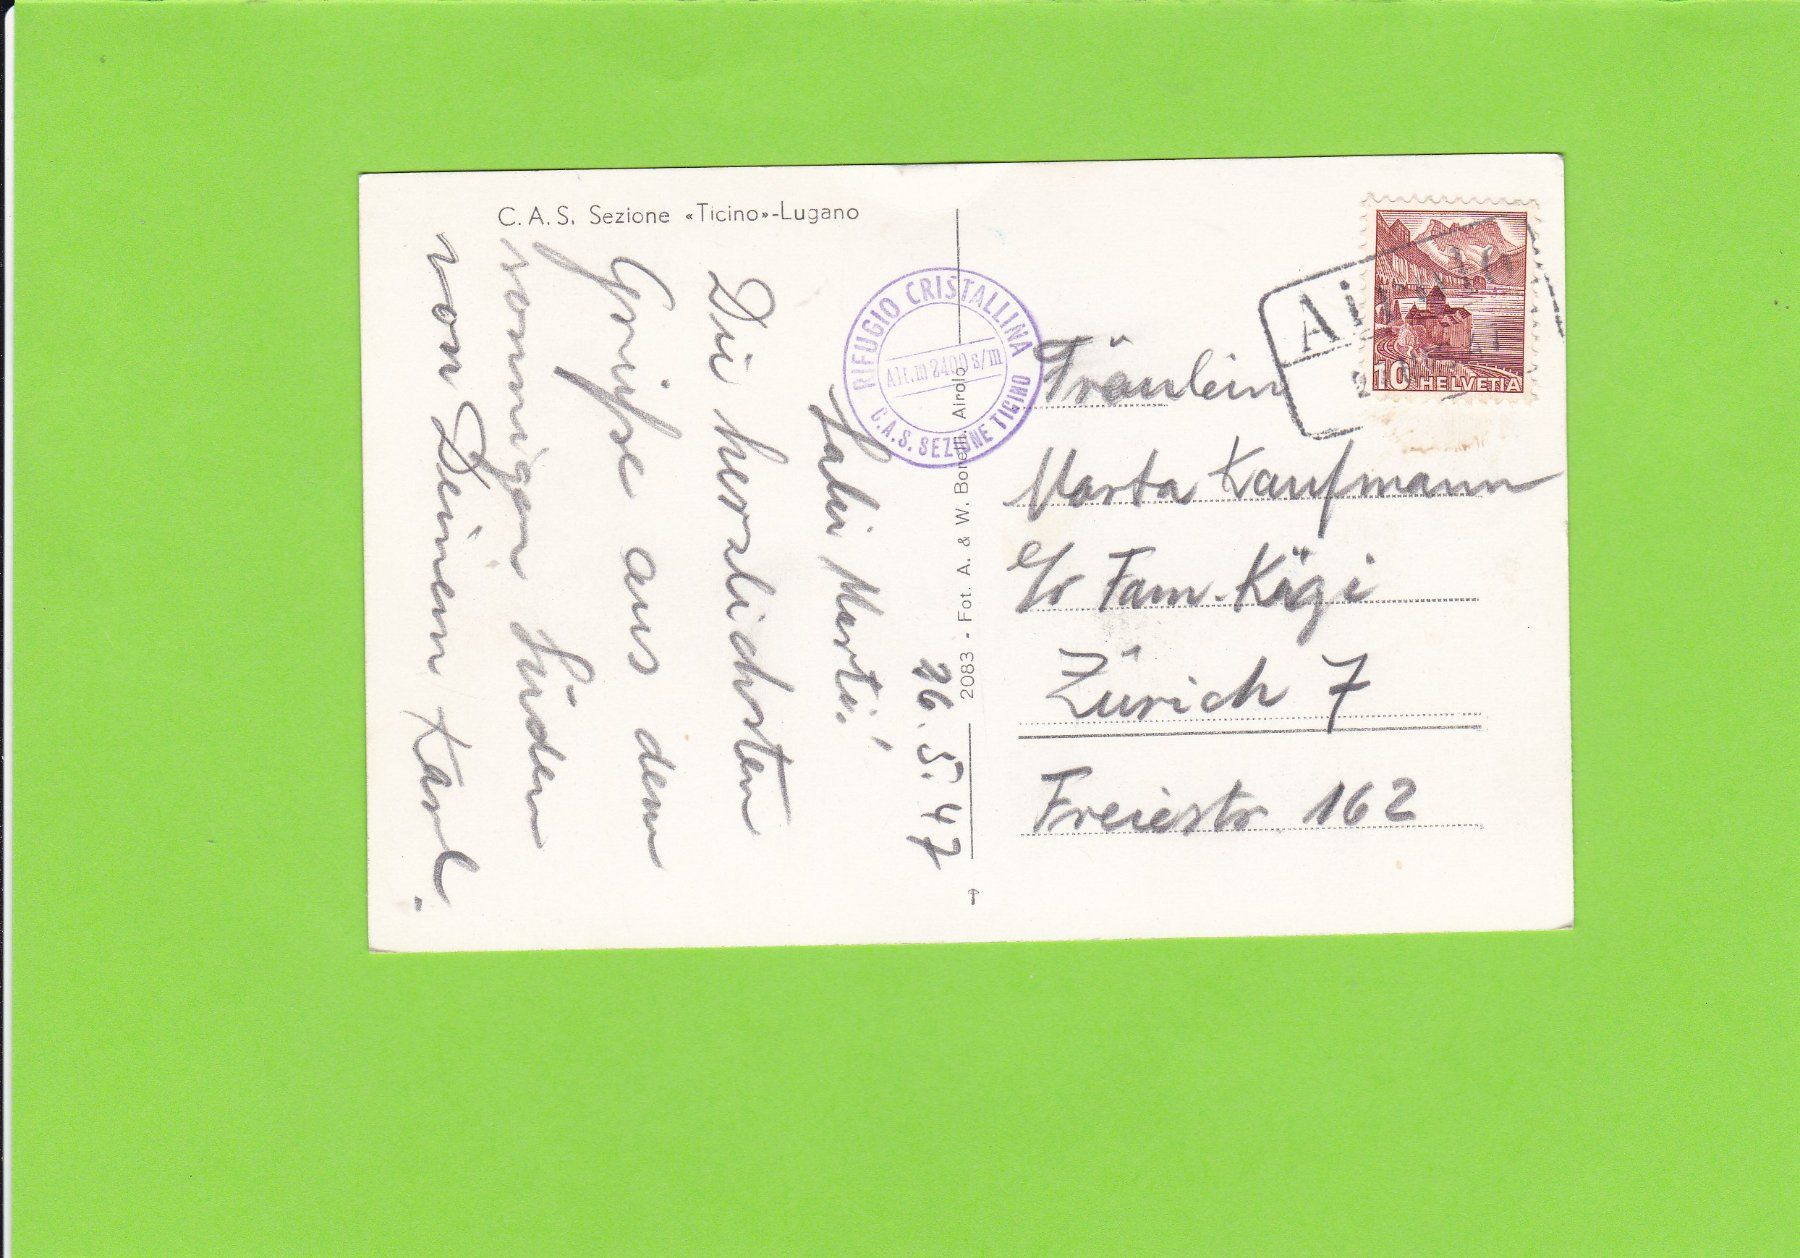 C.A.S. Sezione «Ticino»-Lugano
26. 5. 47
Salü Marti!
Die herzlichsten
Grüsse aus dem
sonnigen Süden
von Deinem Karl.
RIFUGIO CRISTALLINA
Alt. m 2400 s/m
C.A.S. SEZIONE TICINO
2083 - Fot. A. & W. Borelli, Airolo
10 HELVETIA
Fräulein
Marta Kaufmann
c/o Fam. Kägi
Zürich 7
Freiestr. 162